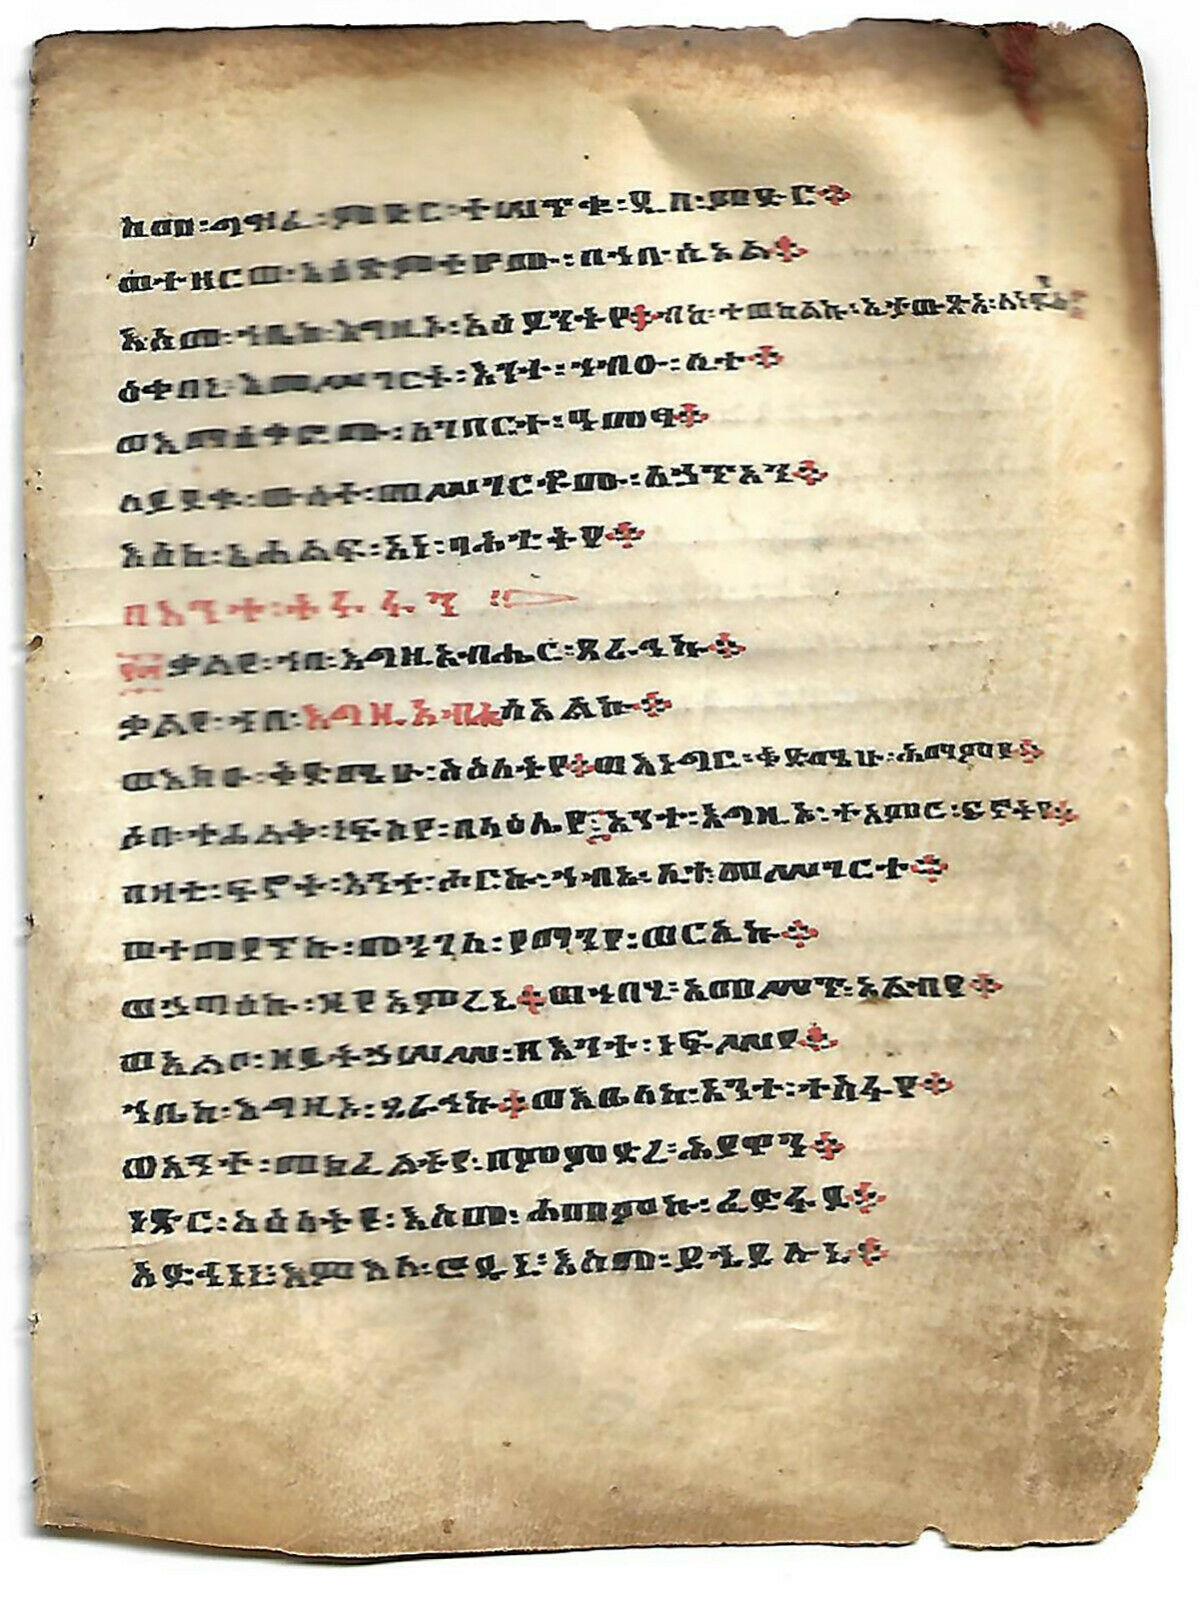 ከመ፡ግዝፈ፡ምድር፡ተሠጥቁ፡ዲበ፡ምድር።
ወተዘርወ፡አዕፅምቲሆሙ፡በኀበ፡ሲኦል።
እስመ፡ኀቤከ፡እግዚኦ፡አዕይንትየ።ብከ፡ተወከልኩ፡ኢታውጽኣ፡ለነፍስየ
ዕቀበኒ፡እመሥገርት፡እንተ፡ኀብኡ፡ሊተ።
ወእማዕቀፎሙ፡ለገበርተ፡ዓመፃ።
ለይደቁ፡ውስተ፡መሥገርቶሙ፡ለኃጥኣን።
እስከ፡አሐልፍ፡አነ፡ባሕቲትየ።
በእንተ፡
ቃልየ፡ኀበ፡እግዚአብሔር፡ጸራኅኩ።
ቃልየ፡ኀበ፡እግዚአብሔር፡ሰአልኩ።
ወእክዑ፡ቅድሜሁ፡ስእለትየ።ወእነግር፡ቅድሜሁ፡ሕማምየ።
ሶበ፡ተኀልቅ፡ነፍስየ፡በላዕሌየ።አንተ፡እግዚኦ፡ተአምር፡ፍኖትየ።
በዛቲ፡ፍኖት፡እንተ፡ሖርኩ፡ኀብኡ፡ሊተ፡መሥገርተ።
ወተመየጥኩ፡መንገለ፡የማንየ፡ወርኢኩ።
ወኃጣእኩ፡ዘያአምረኒ።ወኀብየ፡እመሥጥ፡አልብየ።
ወአልቦ፡ዘይትኃሠሣ፡ለነፍስየ።
ኀቤከ፡እግዚኦ፡ጸራኅኩ።ወእቤለከ፡አንተ፡ተስፋየ።
ወአንተ፡መክፈልትየ፡በምድረ፡ሕያዋን።
ነጽር፡ስእለትየ፡እስመ፡ሐመምኩ፡ፈድፋደ።
አድኅነኒ፡እምእለ፡ሮዱኒ፡እስመ፡ይኄይሉኒ።